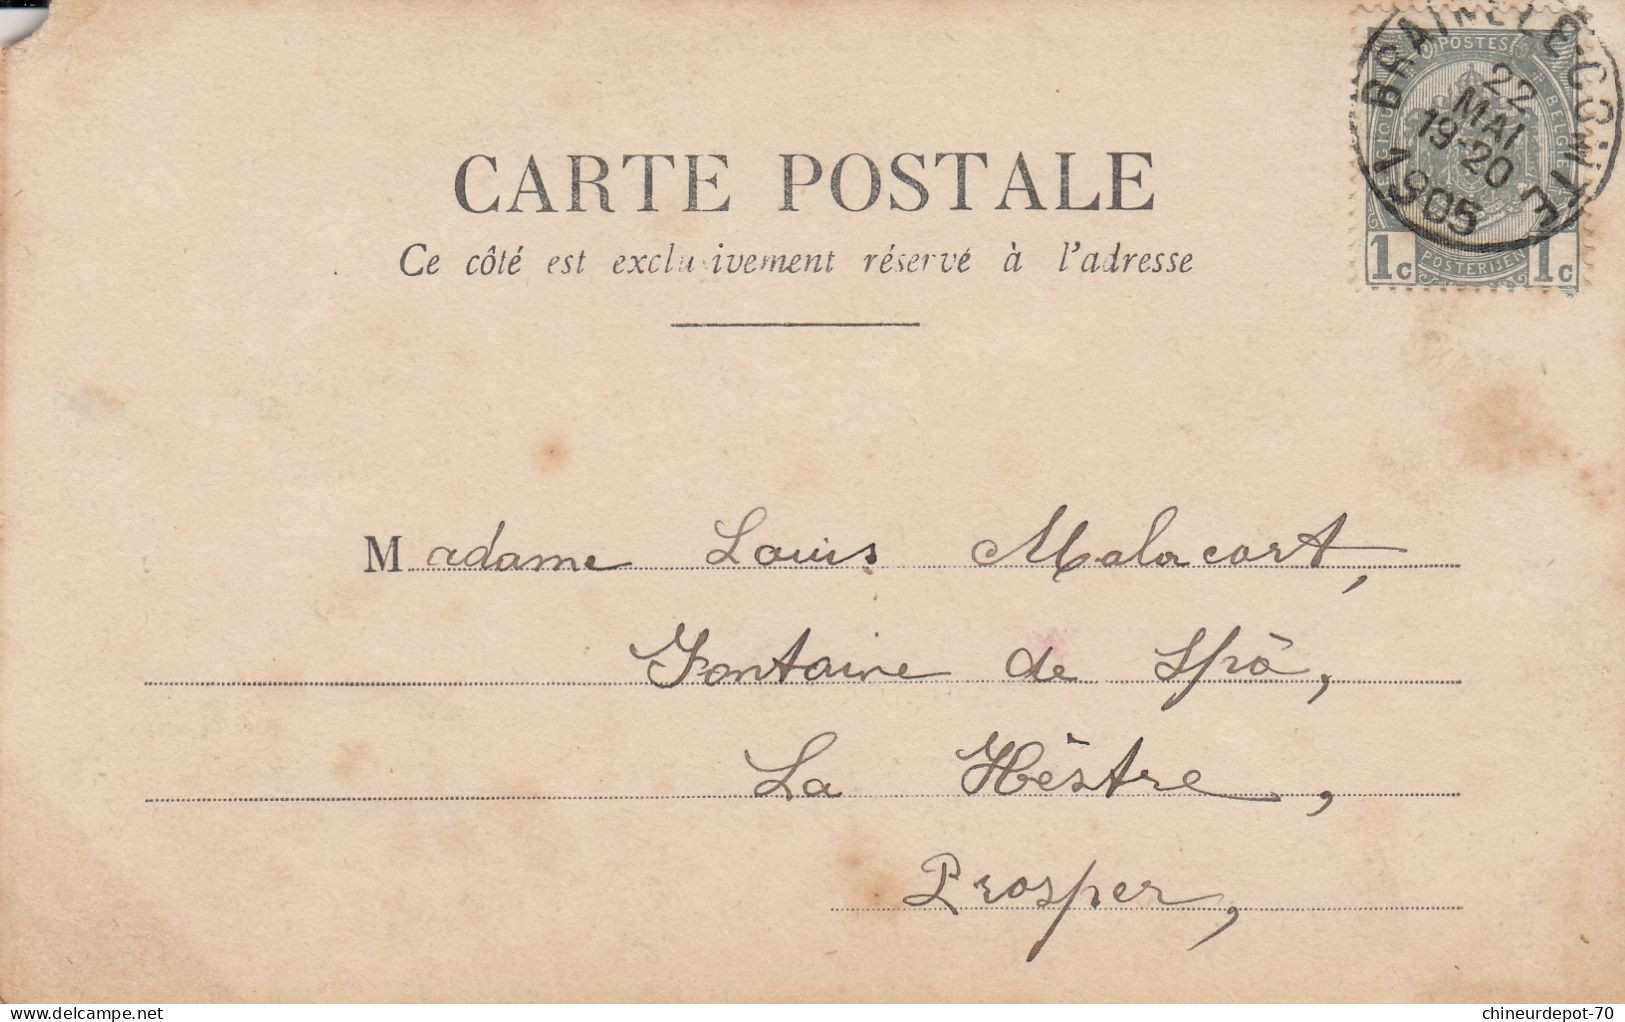 CARTE POSTALE
Ce côté est exclusivement réservé à l'adresse
BRAINE-LE-COMTE
22
MAI
19-20
1905
POSTES
BELGIQUE
BELGIE
1c POSTERIJEN 1c
Madame Louis Malacort,
Fontaine de Spà,
La Hèstre,
Prosper,
delcampe.net
chineurdepot-70